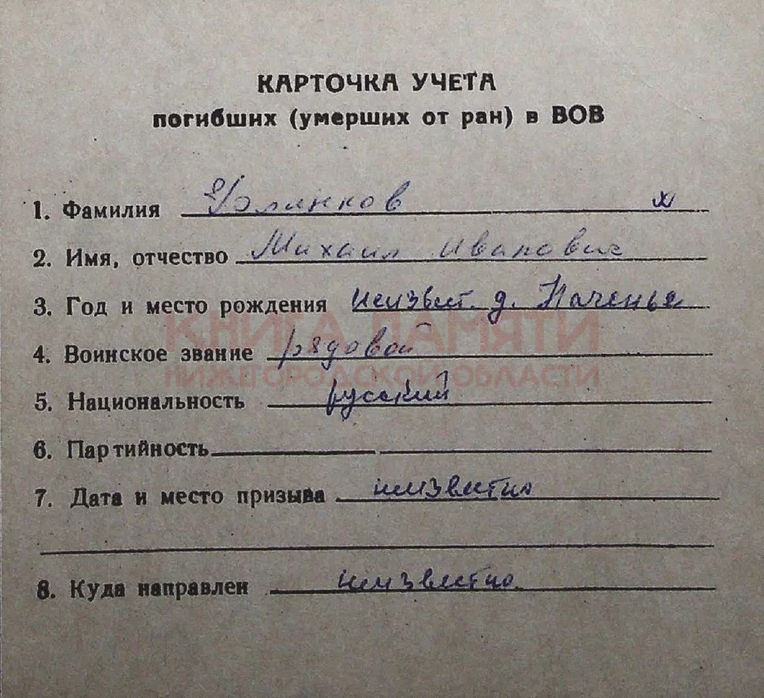 КАРТОЧКА УЧЕТА
погибших (умерших от ран) в ВОВ
1. Фамилия
2. Имя, отчество Михаил Иванович
3. Год и место рождения неизвест. д. Паченье
КНИГА ПАМЯТИ
4. Воинское звание рядовой
НИЖЕГОРОДСКОЙ ОБЛАСТИ
5. Национальность русский
6. Партийность
7. Дата и место призыва неизвестно
8. Куда направлен неизвестно